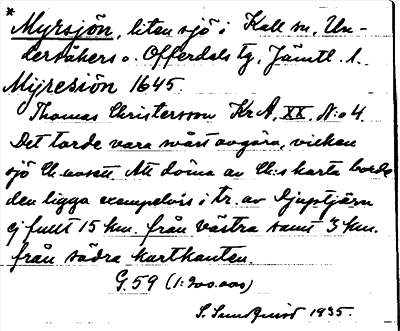 * Myrsjön, liten sjö i Kall sn, Un-
dersåkers o. Offerdals tg, Jämtl. l.
Mijresiön 1645.
Thomas Christersson Kr A, XX, No 4.
Det torde vara svårt avgöra, vilken
sjö Ch. avsett. Att döma av Ch:s karta borde
den ligga exempelvis i tr. av Djuptjärn
ej fullt 15 km. från västra samt 3 km.
från södra kartkanten.
G. 59 (1:200.000)
S. Sundqvist 1935.